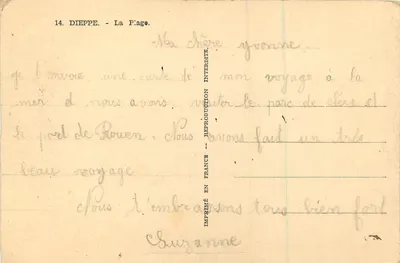 14. DIEPPE. - La Plage.
Ma chère yvonne
je t'envoie une carte de mon voyage à la
mer et nous avons visiter le parc de clère et
le port de Rouen. Nous avons fait un très
beau voyage
Nous t'embrassons tous bien fort
Suzanne
IMPRIMÉ EN FRANCE — REPRODUCTION INTERDITE.